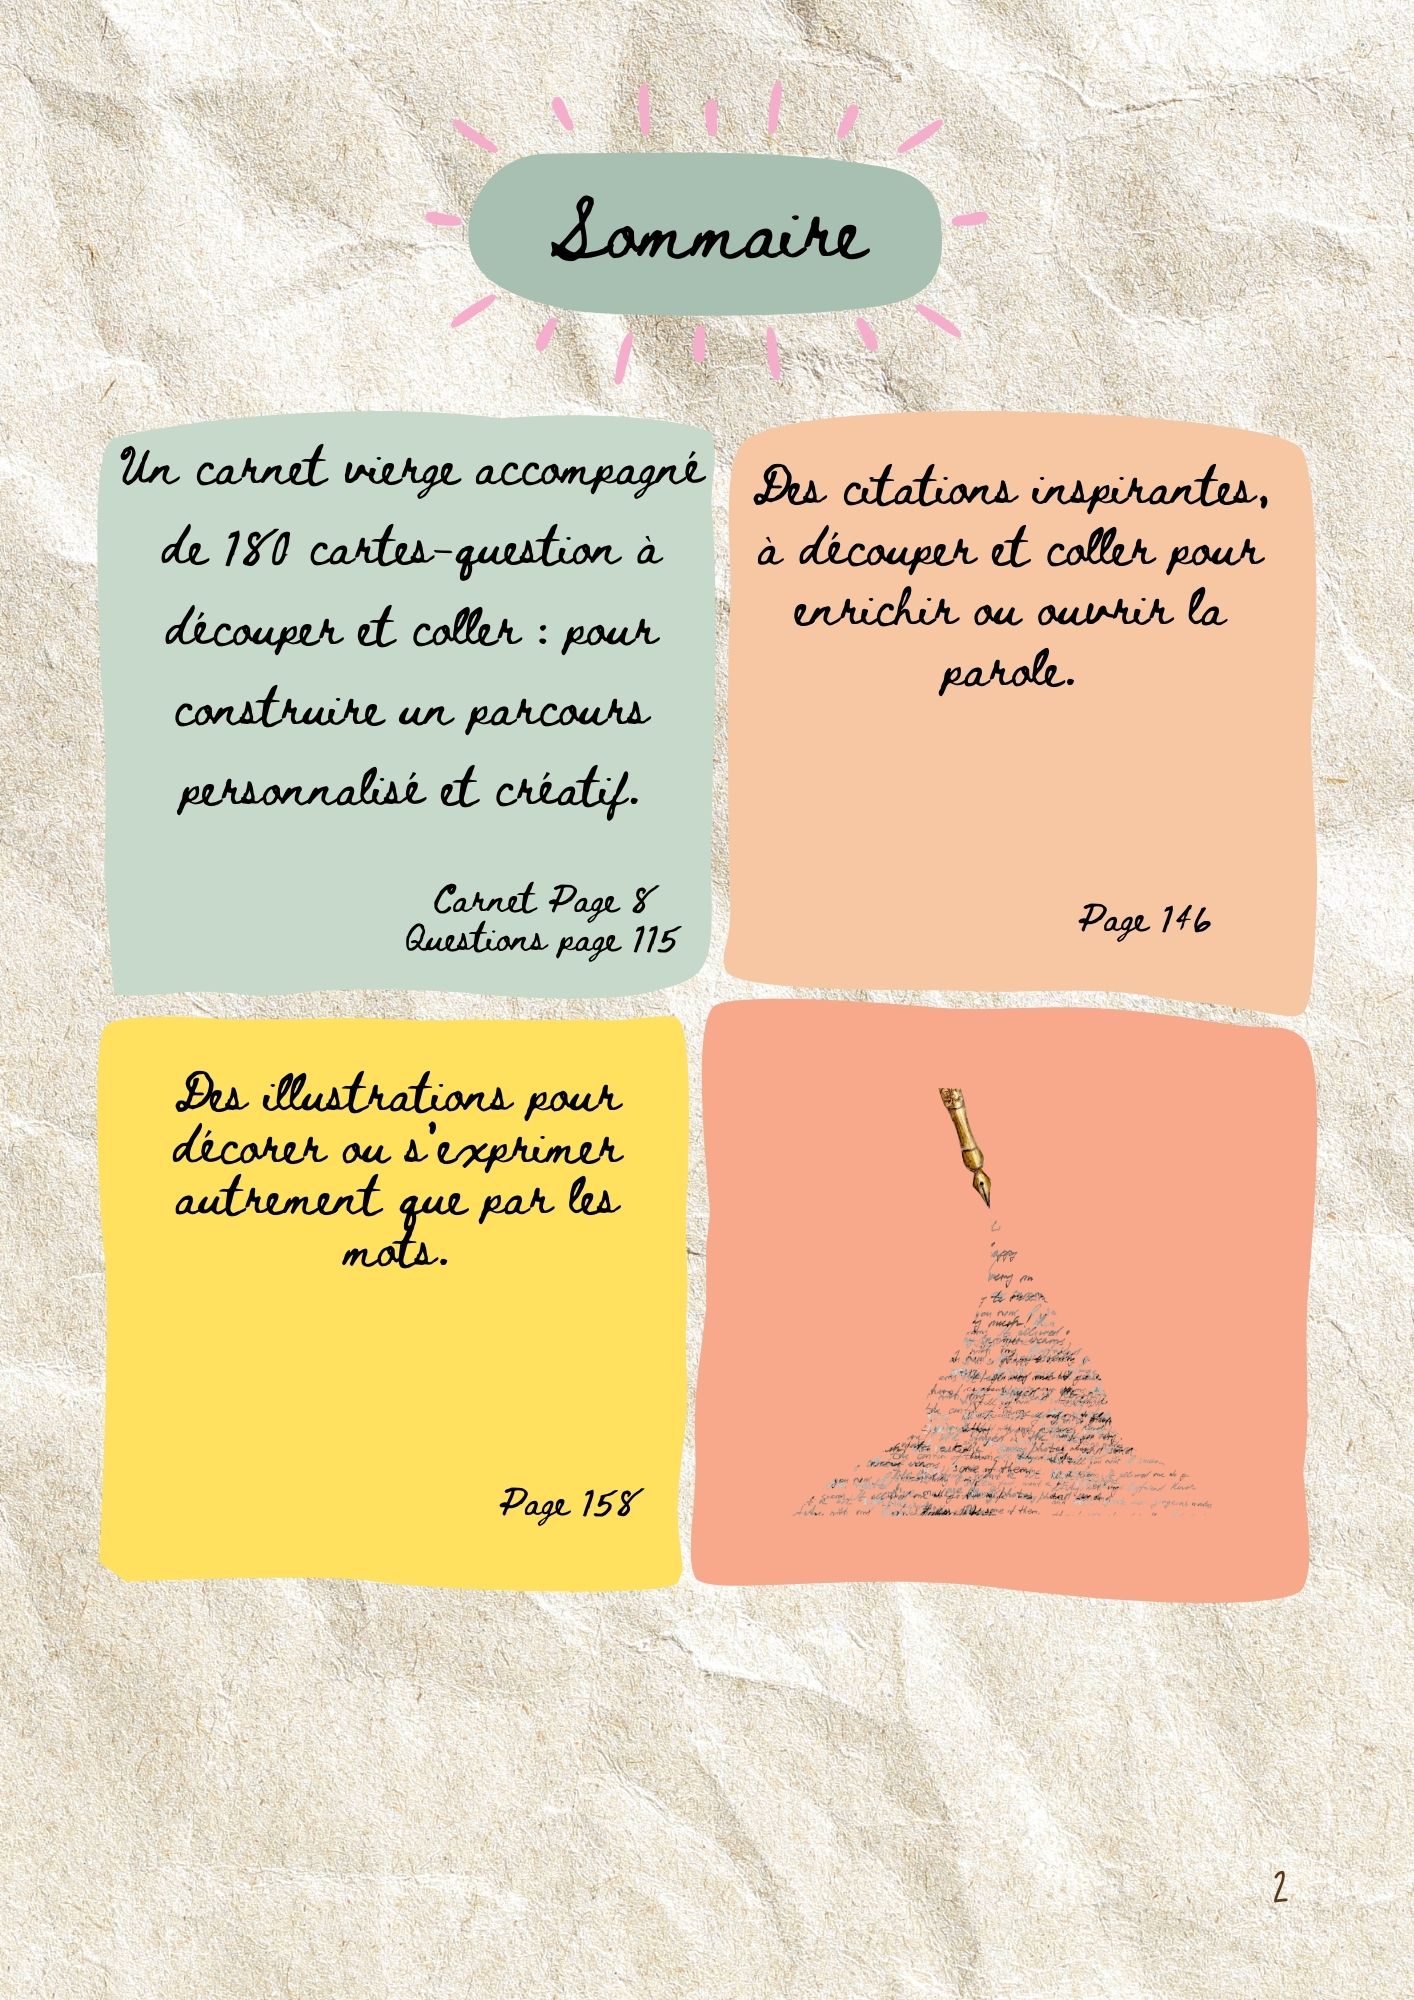 Sommaire
Un carnet vierge accompagné
de 180 cartes-question à
découper et coller : pour
construire un parcours
personnalisé et créatif.
Carnet Page 8
Questions page 115
Des citations inspirantes,
à découper et coller pour
enrichir ou ouvrir la
parole.
Page 146
Des illustrations pour
décorer ou s'exprimer
autrement que par les
mots.
Page 158
2